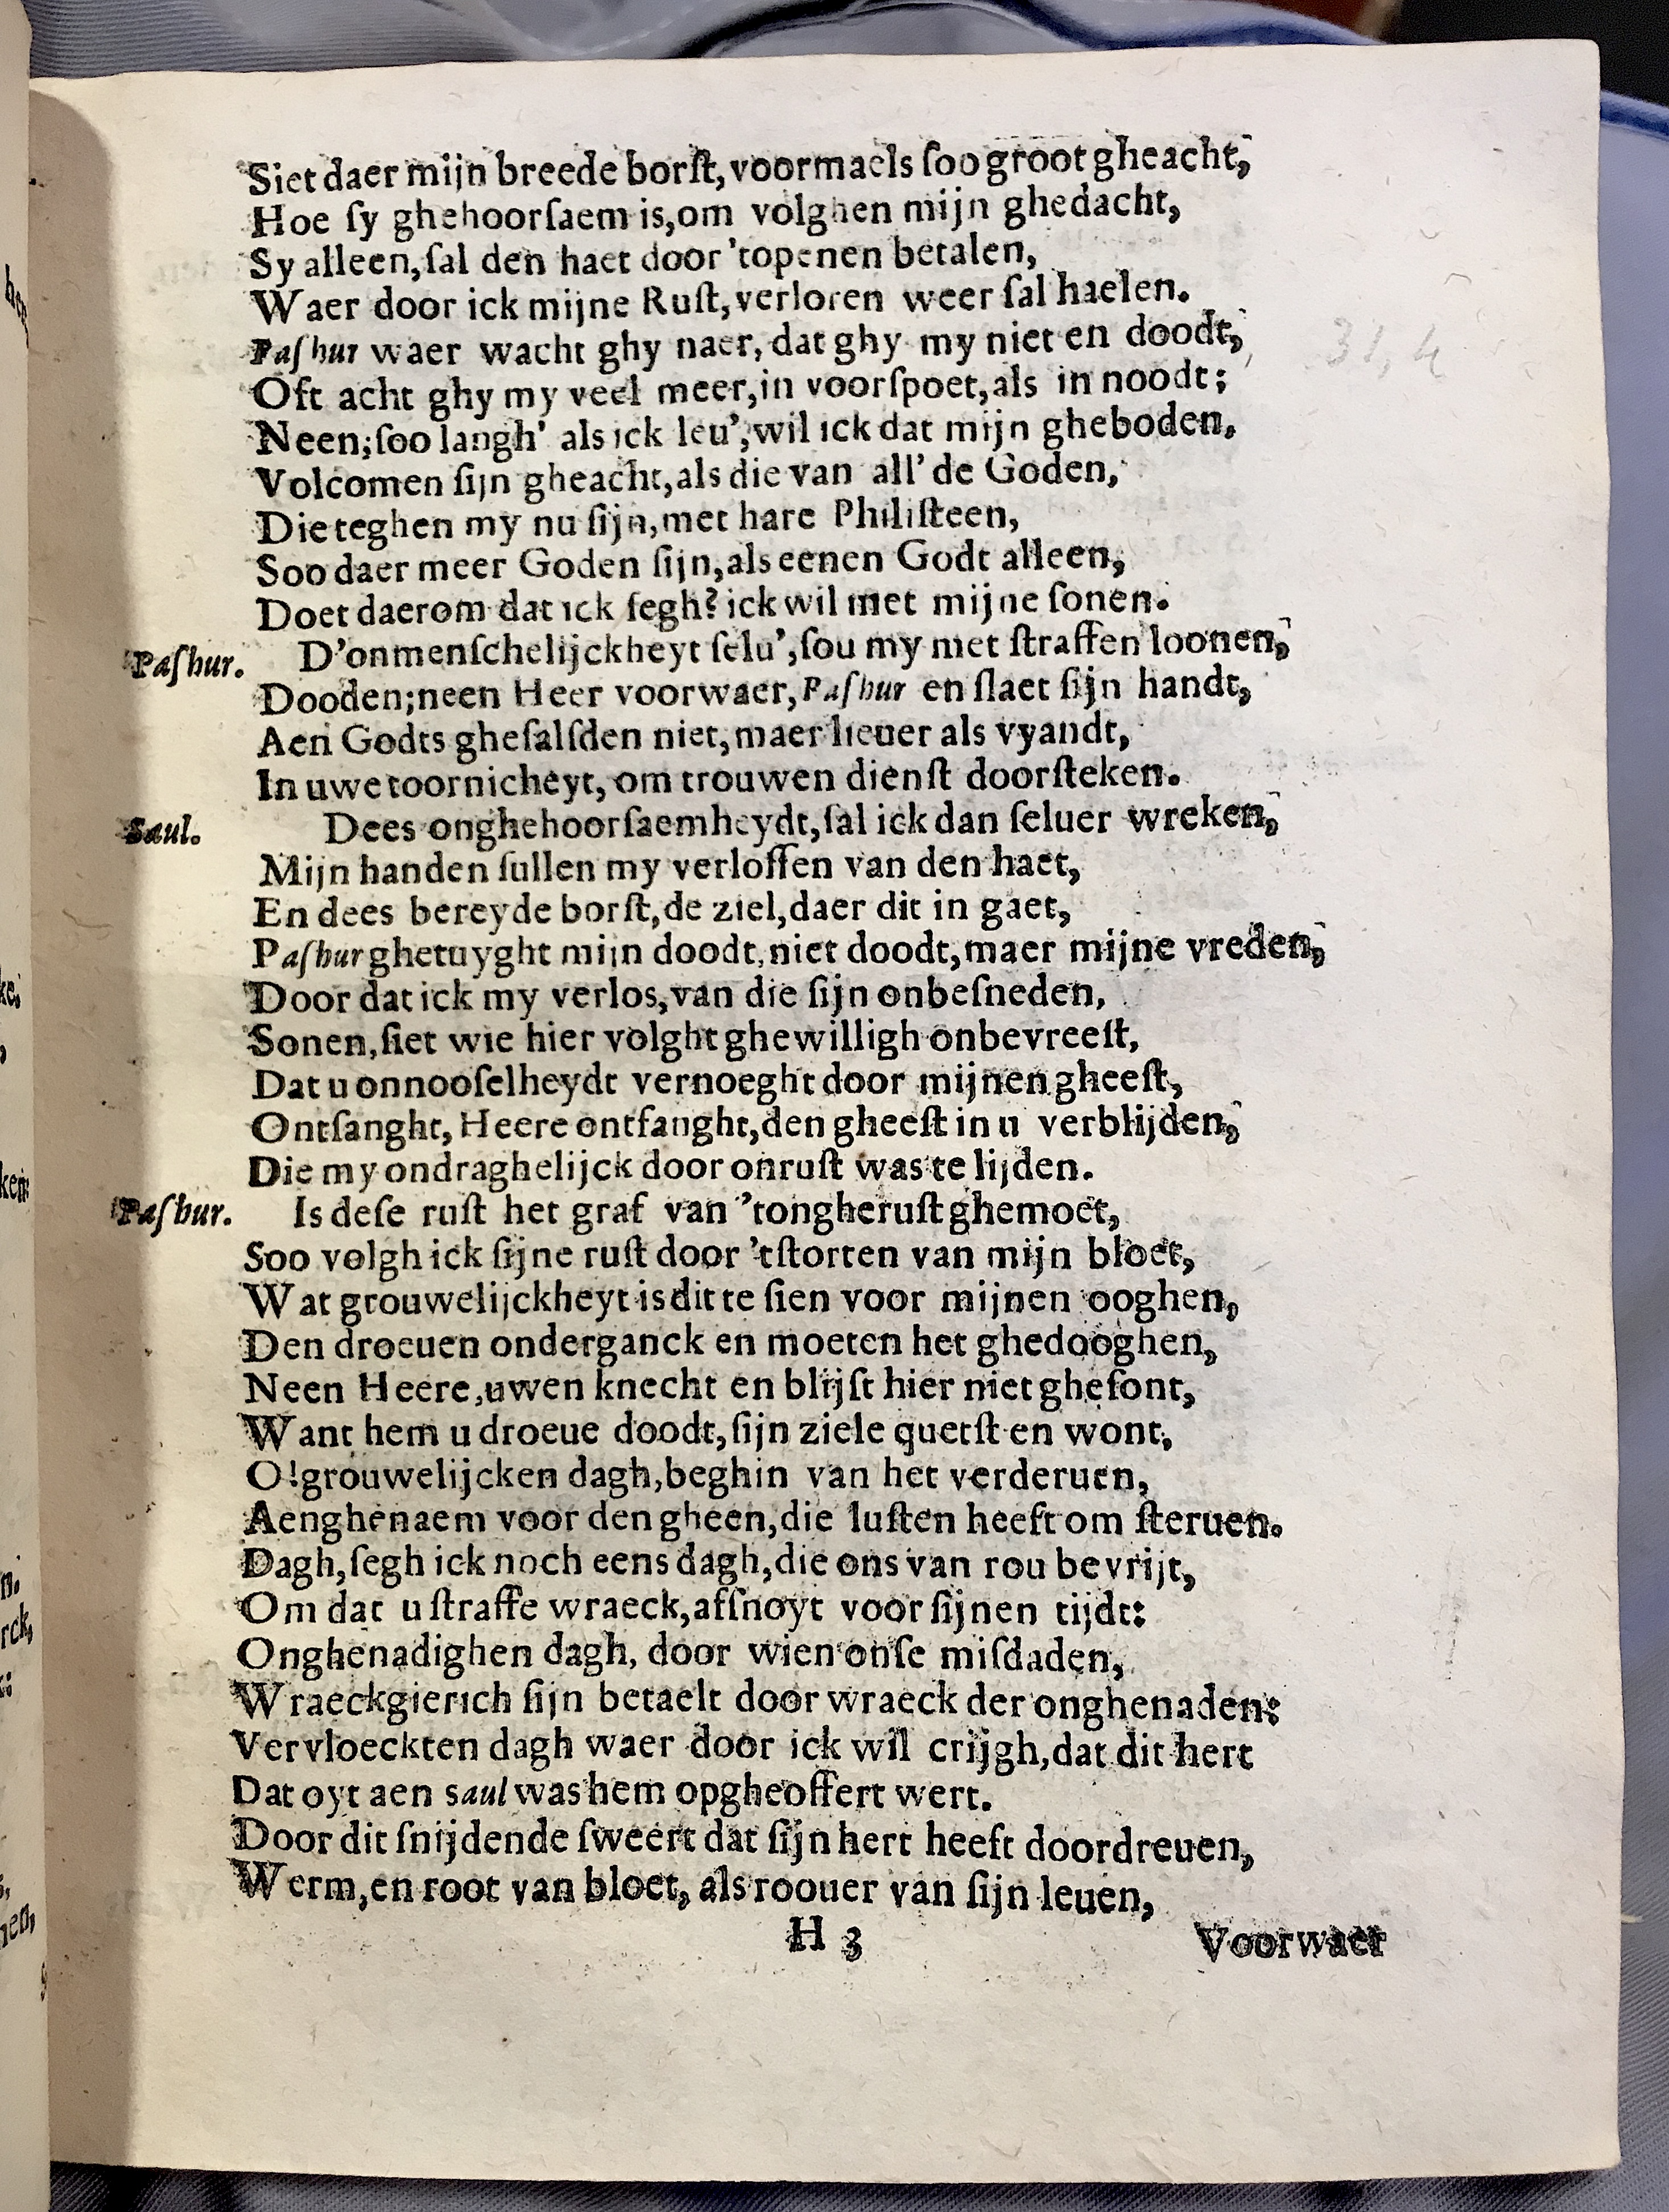 Siet daer mijn breede borſt, voormaels ſoo groot gheacht,
Hoe ſy ghehoorſaem is, om volghen mijn ghedacht,
Sy alleen, ſal den haet door 'topenen betalen,
Waer door ick mijne Ruſt, verloren weer ſal haelen.
Paſhur waer wacht ghy naer, dat ghy my niet en doodt,
31, 4
Oft acht ghy my veel meer, in voorſpoet, als in noodt;
Neen; ſoo langh' als ick leu', wil ick dat mijn gheboden,
Volcomen ſijn gheacht, als die van all' de Goden,
Die teghen my nu ſijn, met hare Philiſteen,
Soo daer meer Goden ſijn, als eenen Godt alleen,
Doet daerom dat ick ſegh? ick wil met mijne ſonen.
Paſhur. D'onmenſchelijckheyt ſelu', ſou my met ſtraffen loonen,
Dooden; neen Heer voorwaer, Paſhur en ſlaet ſijn handt,
Aen Godts gheſalfden niet, maer lieuer als vyandt,
In uwe toornicheyt, om trouwen dienſt doorſteken.
Saul. Dees onghehoorſaemheydt, ſal ick dan ſeluer wreken,
Mijn handen ſullen my verloſſen van den haet,
En dees bereyde borſt, de ziel, daer dit in gaet,
Paſhur ghetuyght mijn doodt, niet doodt, maer mijne vreden,
Door dat ick my verlos, van die ſijn onbeſneden,
Sonen, ſiet wie hier volght ghewilligh onbevreeſt,
Dat u onnooſelheydt vernoeght door mijnen gheeſt,
Ontfanght, Heere ontfanght, den gheeſt in u verblijden,
Die my ondraghelijck door onruſt was te lijden.
Paſhur. Is deſe ruſt het graf van 'tongheruſt ghemoet,
Soo volgh ick ſijne ruſt door 'tſtorten van mijn bloet,
Wat grouwelijckheyt is dit te ſien voor mijnen ooghen,
Den droeuen onderganck en moeten het ghedooghen,
Neen Heere, uwen knecht en blijft hier niet gheſont,
Want hem u droeue doodt, ſijn ziele quetſt en wont,
O! grouwelijcken dagh, beghin van het verderuen,
Aenghenaem voor den gheen, die luſten heeft om ſteruen.
Dagh, ſegh ick noch eens dagh, die ons van rou bevrijt,
Om dat u ſtraffe wraeck, afſnoyt voor ſijnen tijdt:
Onghenadighen dagh, door wien onſe miſdaden,
Wraeckgierich ſijn betaelt door wraeck der onghenaden:
Vervloeckten dagh waer door ick wil crijgh, dat dit hert
Dat oyt aen Saul was hem opgheoffert wert.
Door dit ſnijdende ſweert dat ſijn hert heeft doordreuen,
Werm, en root van bloet, als roouer van ſijn leuen,
H 3 Voorwaer